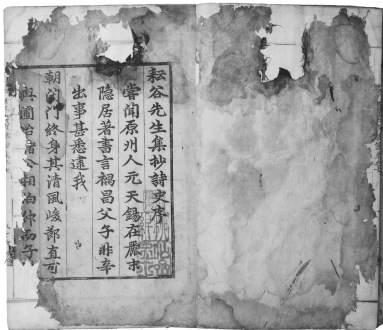 耘谷先生集抄詩史序
嘗聞原州人元天錫在麗末
隱居著書言禑昌父子非辛
出事甚悉逮我
朝閉門終身其清風峻節直可
與圃冶諸公相伯仲而子